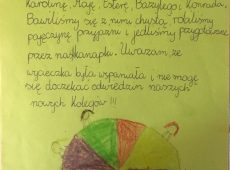 Karolinę, Maję, Esterę, Bazylego, Konrada.
Bawiliśmy się z nimi chustą, robiliśmy
pajęczynę przyjaźni i jedliśmy przygotowane
przez nas kanapki. Uważam, że
wycieczka była wspaniała i nie mogę
się doczekać odwiedzin naszych
nowych kolegów !!!